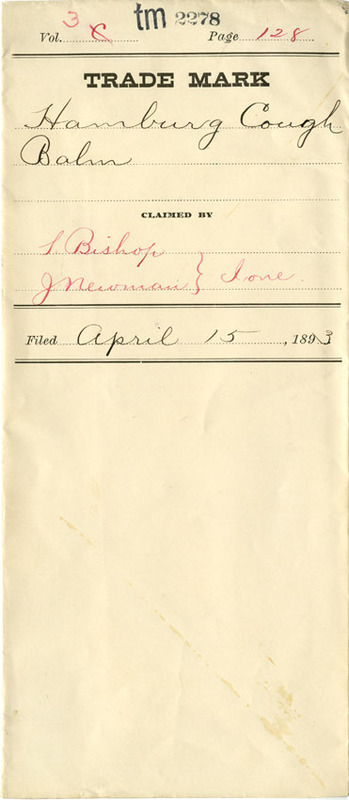 tm 2278
Vol. 3 Page 128
TRADE MARK
Hamburg Cough
Balm
CLAIMED BY
L Bishop
J Newman } Ione.
Filed April 15, 1893